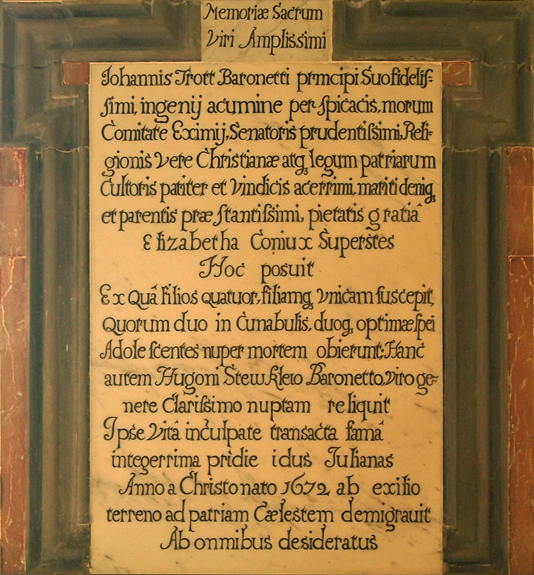 Memoriæ Sacrum
Viri Amplissimi
Iohannis Trott Baronetti principi Suo fidelis-
simi, ingenij acumine perspicacis, morum
Comitate Eximij, Senatoris prudentissimi, Reli-
gionis Vere Christianæ atq, legum patriarum
Cultoris pariter et Vindicis acerrimi, mariti deniq,
et parentis præstantissimi, pietatis gratiâ
Elizabetha Coniux Superstes
Hoc posuit
Ex Quâ filios quatuor, filiamq, Vnicam suscepit,
Quorum duo in Cunabulis, duoq, optimæ spei
Adolescentes nuper mortem obierunt: Hanc
autem Hugoni Stewkleio Baronetto, viro ge-
nere Clarissimo nuptam reliquit
Ipse Vitâ inculpate transacta famâ
integerrima pridie idus Iulianas
Anno a Christo nato 1672 ab exilio
terreno ad patriam Cælestem demigrauit
Ab omnibus desideratus